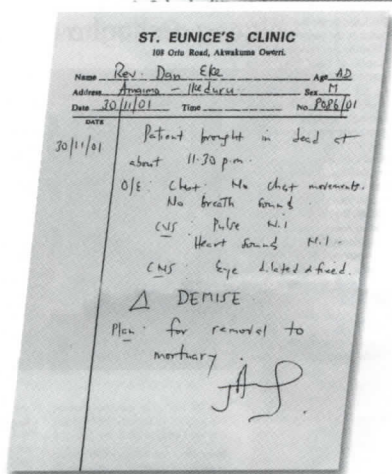 ST. EUNICE'S CLINIC
108 Orlu Road, Akwakuma Owerri.
Name Rev. Dan Eke Age AD
Address Amaimo - Ikeduru Sex M
Date 30/11/01 Time No P086/01
DATE
30/11/01 Patient brought in dead at
about 11.30 p.m.
O/E: Chest: No chest movements.
No breath sounds
CVS: Pulse N.I
Heart sounds N.I.
CNS: Eye dilated & fixed.
Δ DEMISE
Plan: for removal to
mortuary